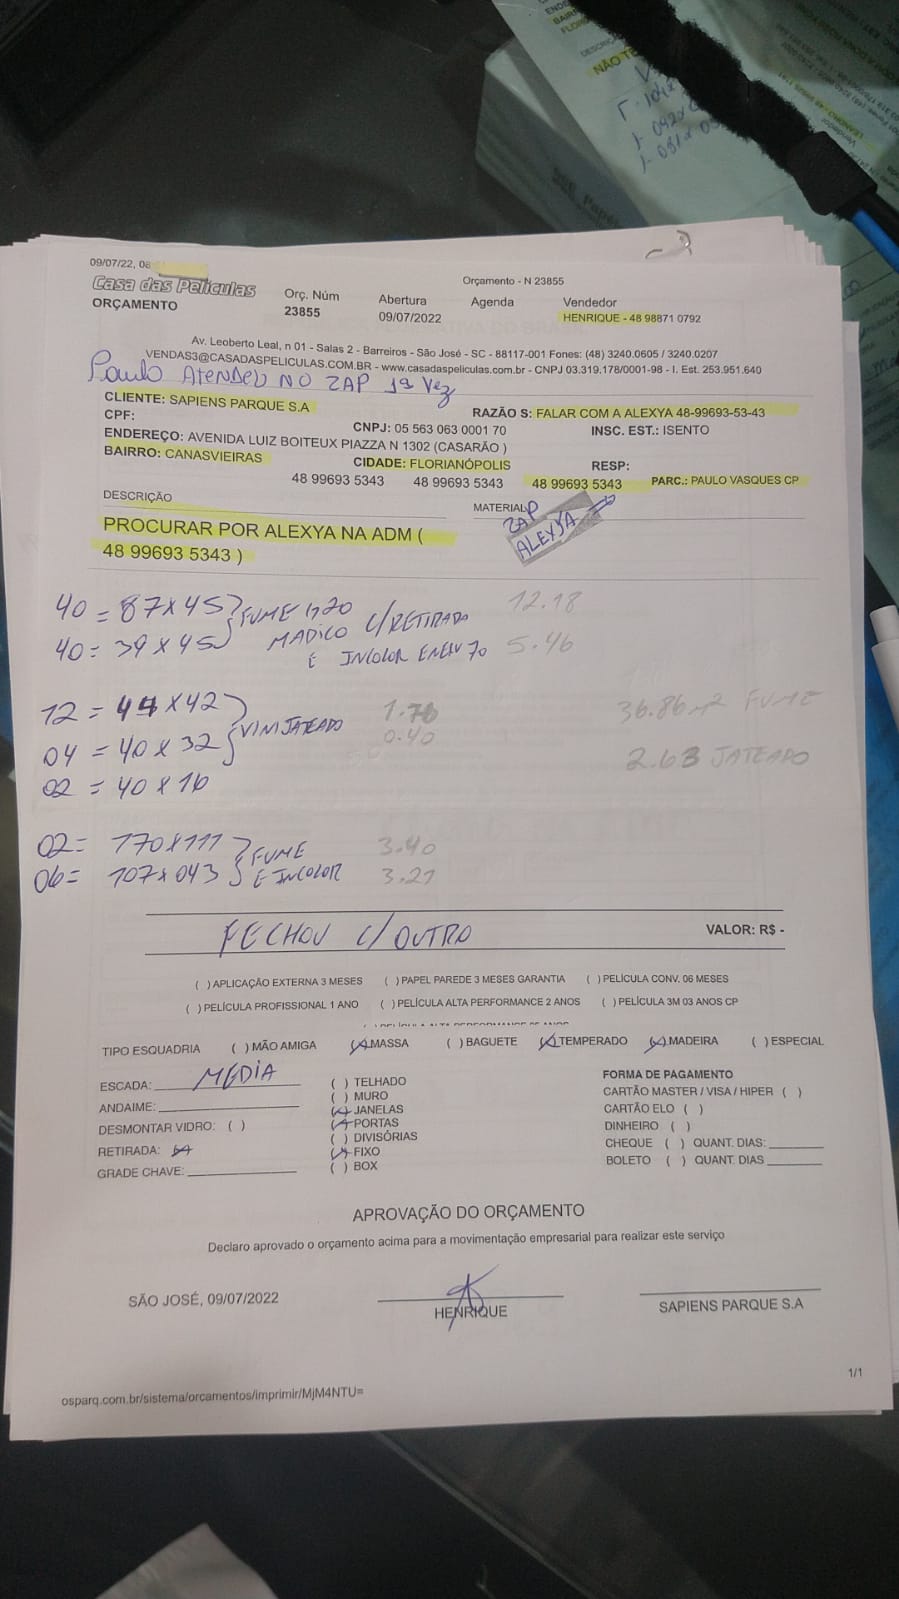 09/07/22, 08
Orçamento - N 23855
Casa das Películas
ORÇAMENTO
Orç. Núm
23855
Abertura
09/07/2022
Agenda
Vendedor
HENRIQUE - 48 98871 0792
Av. Leoberto Leal, n 01 - Salas 2 - Barreiros - São José - SC - 88117-001 Fones: (48) 3240.0605 / 3240.0207
VENDAS3@CASADASPELICULAS.COM.BR - www.casadaspeliculas.com.br - CNPJ 03.319.178/0001-98 - I. Est. 253.951.640
PAULO ATENDEU NO ZAP 1ª VEZ
CLIENTE: SAPIENS PARQUE S.A
RAZÃO S: FALAR COM A ALEXYA 48-99693-53-43
CPF:
CNPJ: 05 563 063 0001 70
INSC. EST.: ISENTO
ENDEREÇO: AVENIDA LUIZ BOITEUX PIAZZA N 1302 (CASARÃO )
BAIRRO: CANASVIEIRAS
CIDADE: FLORIANÓPOLIS
RESP:
48 99693 5343 48 99693 5343 48 99693 5343
PARC.: PAULO VASQUES CP
DESCRIÇÃO
MATERIAL
ZAP
ALEXYA
PROCURAR POR ALEXYA NA ADM (
48 99693 5343 )
40 = 87 x 45 FUME 20 12.18
40 = 39 x 45 C/RETIRADA
E INCOLOR 70 5.46
12 = 44 x 42 1.76 36.86 m² FUME
04 = 40 x 32 VINIL JATEADO 0.40
02 = 40 x 16 2.63 JATEADO
02 = 170 x 111 FUME 3.40
06 = 107 x 043 E INCOLOR 3.21
FECHOU C/ OUTRO
VALOR: R$ -
( ) APLICAÇÃO EXTERNA 3 MESES ( ) PAPEL PAREDE 3 MESES GARANTIA ( ) PELÍCULA CONV. 06 MESES
( ) PELÍCULA PROFISSIONAL 1 ANO ( ) PELÍCULA ALTA PERFORMANCE 2 ANOS ( ) PELÍCULA 3M 03 ANOS CP
TIPO ESQUADRIA ( ) MÃO AMIGA (x) MASSA ( ) BAGUETE (x) TEMPERADO (x) MADEIRA ( ) ESPECIAL
ESCADA: MEDIA
ANDAIME:
DESMONTAR VIDRO: ( )
RETIRADA: (x)
GRADE CHAVE:
( ) TELHADO
( ) MURO
(x) JANELAS
(x) PORTAS
( ) DIVISÓRIAS
(x) FIXO
( ) BOX
FORMA DE PAGAMENTO
CARTÃO MASTER / VISA / HIPER ( )
CARTÃO ELO ( )
DINHEIRO ( )
CHEQUE ( ) QUANT. DIAS:
BOLETO ( ) QUANT. DIAS
APROVAÇÃO DO ORÇAMENTO
Declaro aprovado o orçamento acima para a movimentação empresarial para realizar este serviço
SÃO JOSÉ, 09/07/2022
HENRIQUE
SAPIENS PARQUE S.A
1/1
osparq.com.br/sistema/orcamentos/imprimir/MjM4NTU=